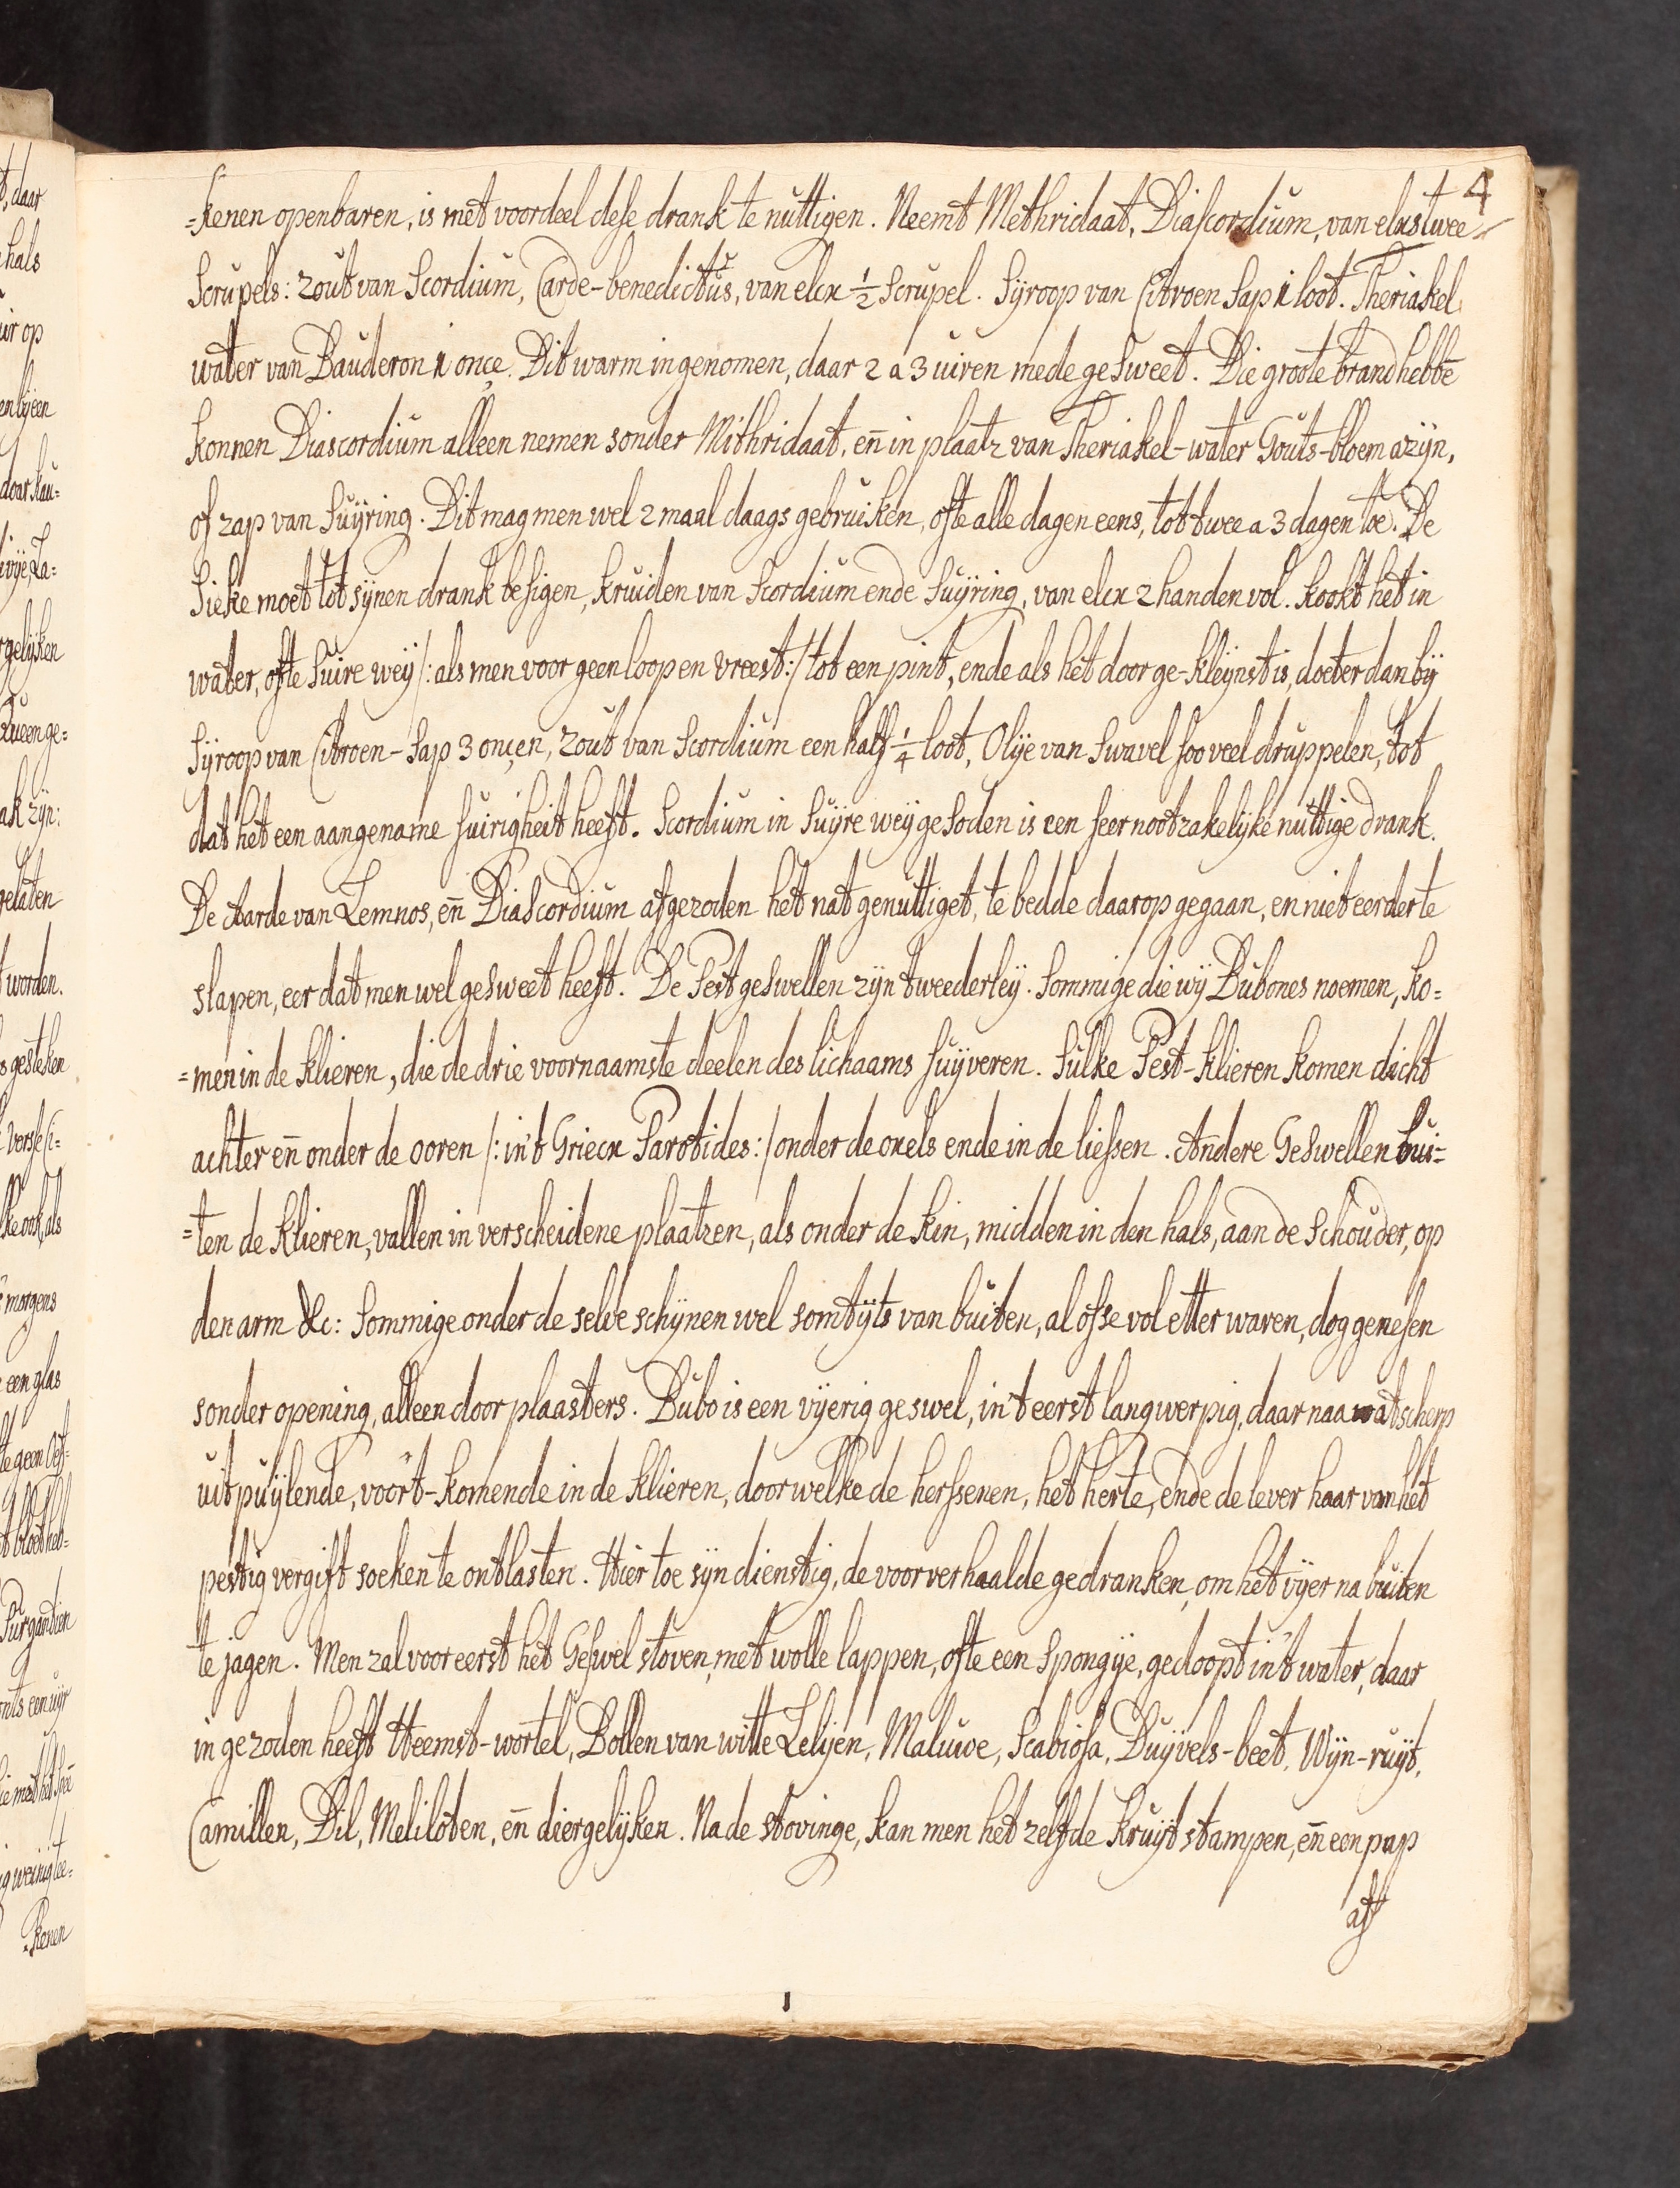 4
=kenen openbaren, is met voordeel dese drank te nuttigen. Neemt Methridaat, Diascordium, van elx twee
Scrupels: Zout van Scordium, Carde-benedictus, van elcx ½ Scrupel. Syroop van Citroen Sap 1 loot. Theriakel
water van Bauderon 1 once. Dit warm ingenomen, daar 2 a 3 uiren mede gesweet. Die groote brand hebbē
konnen Diascordium alleen nemen sonder Mithridaat, en̄ in plaatz van Theriakel-water Gouts-bloem azijn,
of zap van Suyring. Dit mag men wel 2 maal daags gebruiken, ofte alle dagen eens, tot twee a 3 dagen toe. De
Sieke moet tot sijnen drank besigen, kruiden van Scordium ende Suyring, van elcx 2 handen vol. Kookt het in
water, ofte Suire wey /: als men voor geen loopen vreest :/ tot een pint, ende als het doorge-kleijnst is, doeter dan bij
Syroop van Citroen-Sap 3 oncen, Zout van Scordium een half ¼ loot, Olije van Swavel soo veel druppelen, tot
dat het een aangename suirigheit heeft. Scordium in Suyre wey gesoden is een seer nootzakelijke nuttige drank.
De Aarde van Lemnos, en̄ Diascordium afgezoden het nat genuttiget, te bedde daarop gegaan, en niet eerder te
slapen, eer dat men wel gesweet heeft. De Pest geswellen zijn tweederley. Sommige die wij Bubones noemen, ko=
=men in de klieren, die de drie voornaamste deelen des lichaams suyveren. Sulke Pest-klieren komen dicht
achter en̄ onder de ooren /: in't Griecx Parotides :/ onder de oxels ende in de liessen. Andere Geswellen bui=
=ten de klieren, vallen in verscheidene plaatzen, als onder de kin, midden in den hals, aan de Schouder, op
den arm &c: Sommige onder de selve schijnen wel somtijts van buiten, al ofse vol etter waren, dog genesen
sonder opening, alleen door plaasters. Bubo is een vijerig geswel, in't eerst langwerpig, daar naa wat scherp
uitpuijlende, voort-komende in de klieren, door welke de herssenen, het herte, ende de lever haar van het
pestig vergift soeken te ontlasten. Hier toe sijn dienstig, de voorverhaalde gedranken, om het vijer na buiten
te jagen. Men zal voor eerst het Geswel stoven, met wolle lappen, ofte een Spongije, gedoopt in't water, daar
in gezoden heeft Heemst-wortel, Bollen van witte Lelijen, Maluwe, Scabiosa, Duyvels-beet, Wijn-ruijt,
Camillen, Dil, Meliloten, en̄ diergelijken. Na de stovinge, kan men het zelfde kruijt stampen, en̄ een pap
af